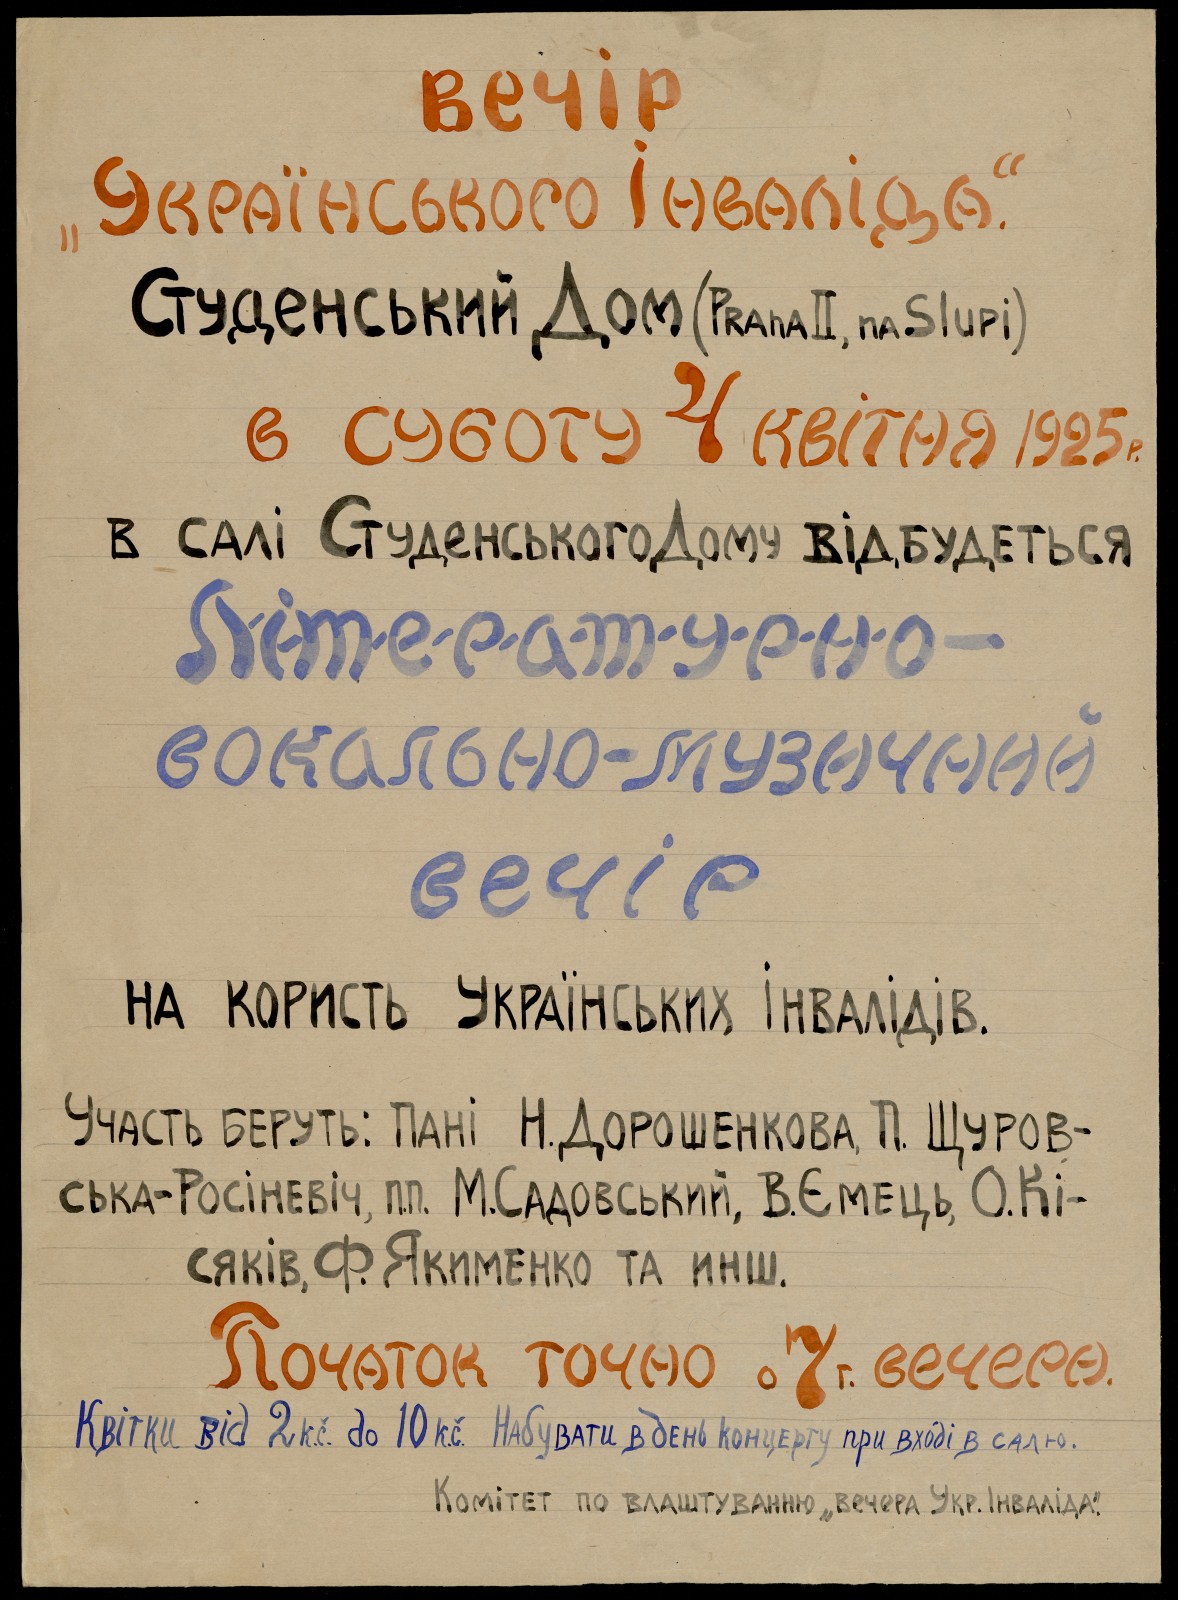 вечір
„Українського Інваліда".
Студенський Дом (Praha II, na Slupi)
в суботу 4 квітня 1925 р.
в салі Студенського Дому відбудеться
Л-і-т-е-р-а-т-у-р-н-о-
вокально-музичний
вечір
на користь Українських Інвалідів.
Участь беруть: Пані Н. Дорошенкова, П. Щуров-
ська-Росіневіч, п.п. М. Садовський, В. Ємець, О. Кі-
сяків, Ф. Якименко та инш.
Початок точно о 7 г. вечера.
Квітки від 2 к.č. до 10 к.č. Набувати в день концерту при вході в салю.
Комітет по влаштуванню „вечера Укр. Інваліда".